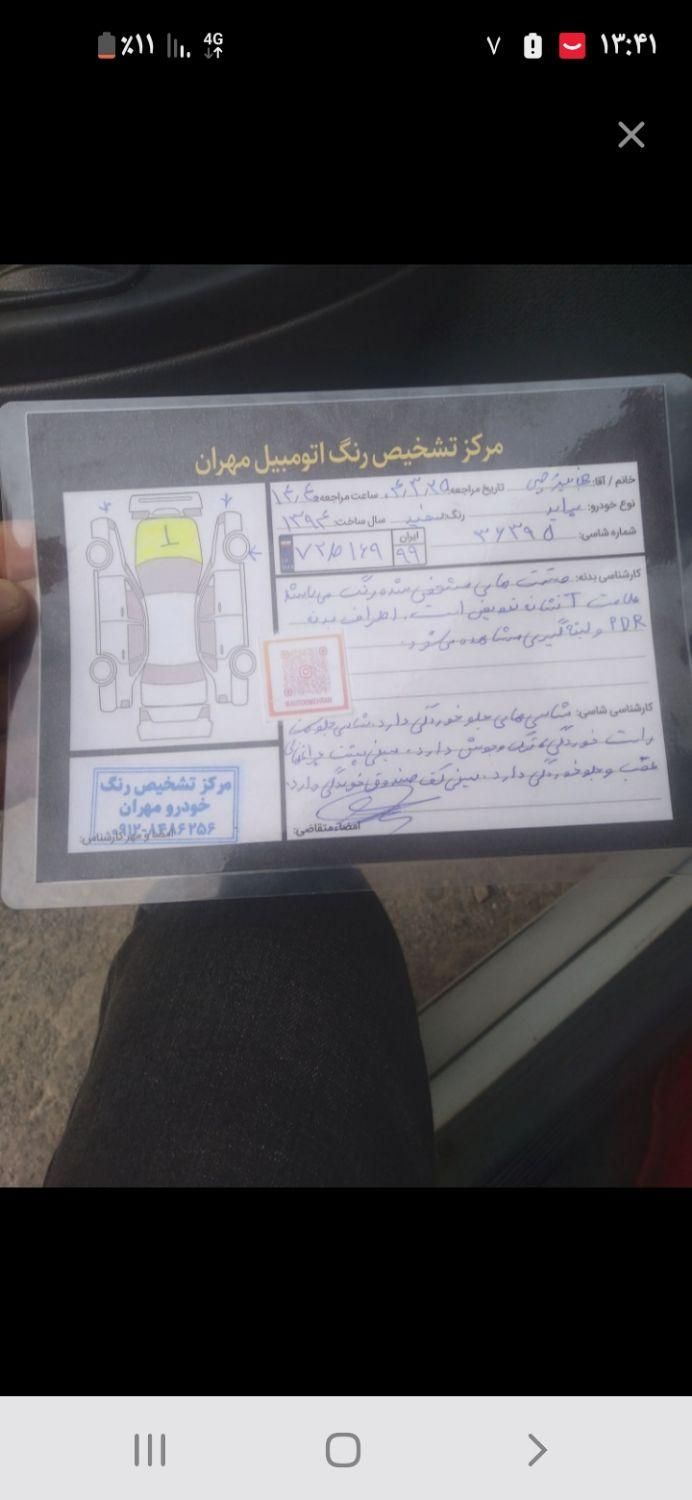 ٪۱۱
4G
۷
۱۳:۴۱
مرکز تشخیص رنگ اتومبیل مهران
خانم / آقا: تاریخ مراجعه: ۴،۳،۲۵ ساعت مراجعه:
نوع خودرو: پراید رنگ: سفید سال ساخت: ۱۳۹۴
شماره شاسی: ۳۶۳۹۵
ایران
۹۹
۷۲ ۱۶۹
T
کارشناسی بدنه: قسمت هایی مشخص شده رنگ می باشد
علامت T نشانه تعویض است. اطراف بدنه
PDR و لبه گیری مشاهده می شود.
کارشناسی شاسی: شاسی های جلو خوردگی دارد. شاسی جلو سمت
راست خوردگی، ترک و جوش دارد. سینی پشت چراغهای
عقب و جلو خوردگی دارد. سینی کف صندوق خوردگی دارد.
امضاء متقاضی:
مرکز تشخیص رنگ
خودرو مهران
امضا و مهر کارشناس: